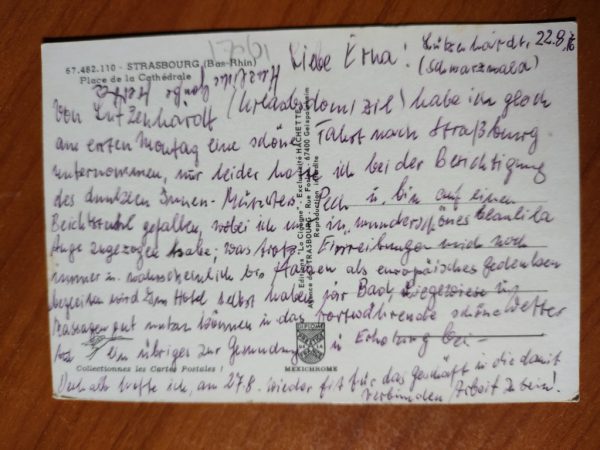 67.482.110 - STRASBOURG (Bas-Rhin)
Place de la Cathédrale
Liebe Erna! Lützenhardt, 22.8.
(Schwarzwald)
Von Lützenhardt (Urlaubsdomizil) habe ich gleich
am ersten Montag eine schöne Fahrt nach Straßburg
unternommen, nur leider hatte ich bei der Besichtigung
des dunklen Innen-Münsters Pech u. bin auf einen
Beichtstuhl gefallen, wobei ich mir ein wunderschönes blaulila
Auge zugezogen habe; was trotz Einreibungen mich noch
immer u. wahrscheinlich bis als europäisches Gedenken
begleiten wird. Im Hotel selbst haben wir Bad, Liegewiese u.
Massagen gut nutzen können u. das fortwährende schöne Wetter
Ein übriges zur Gesundung u. Erholung bei-
Deshalb hoffe ich, am 27.8. wieder fit für das Geschäft u. die damit
verbundene Arbeit zu sein!
Editions "La Cigogne" - Exclusivité HACHETTE
STRASBOURG - Rue 67400 Geispolsheim
Reproduction interdite
Collectionnez les Cartes Postales !
MEXICHROME